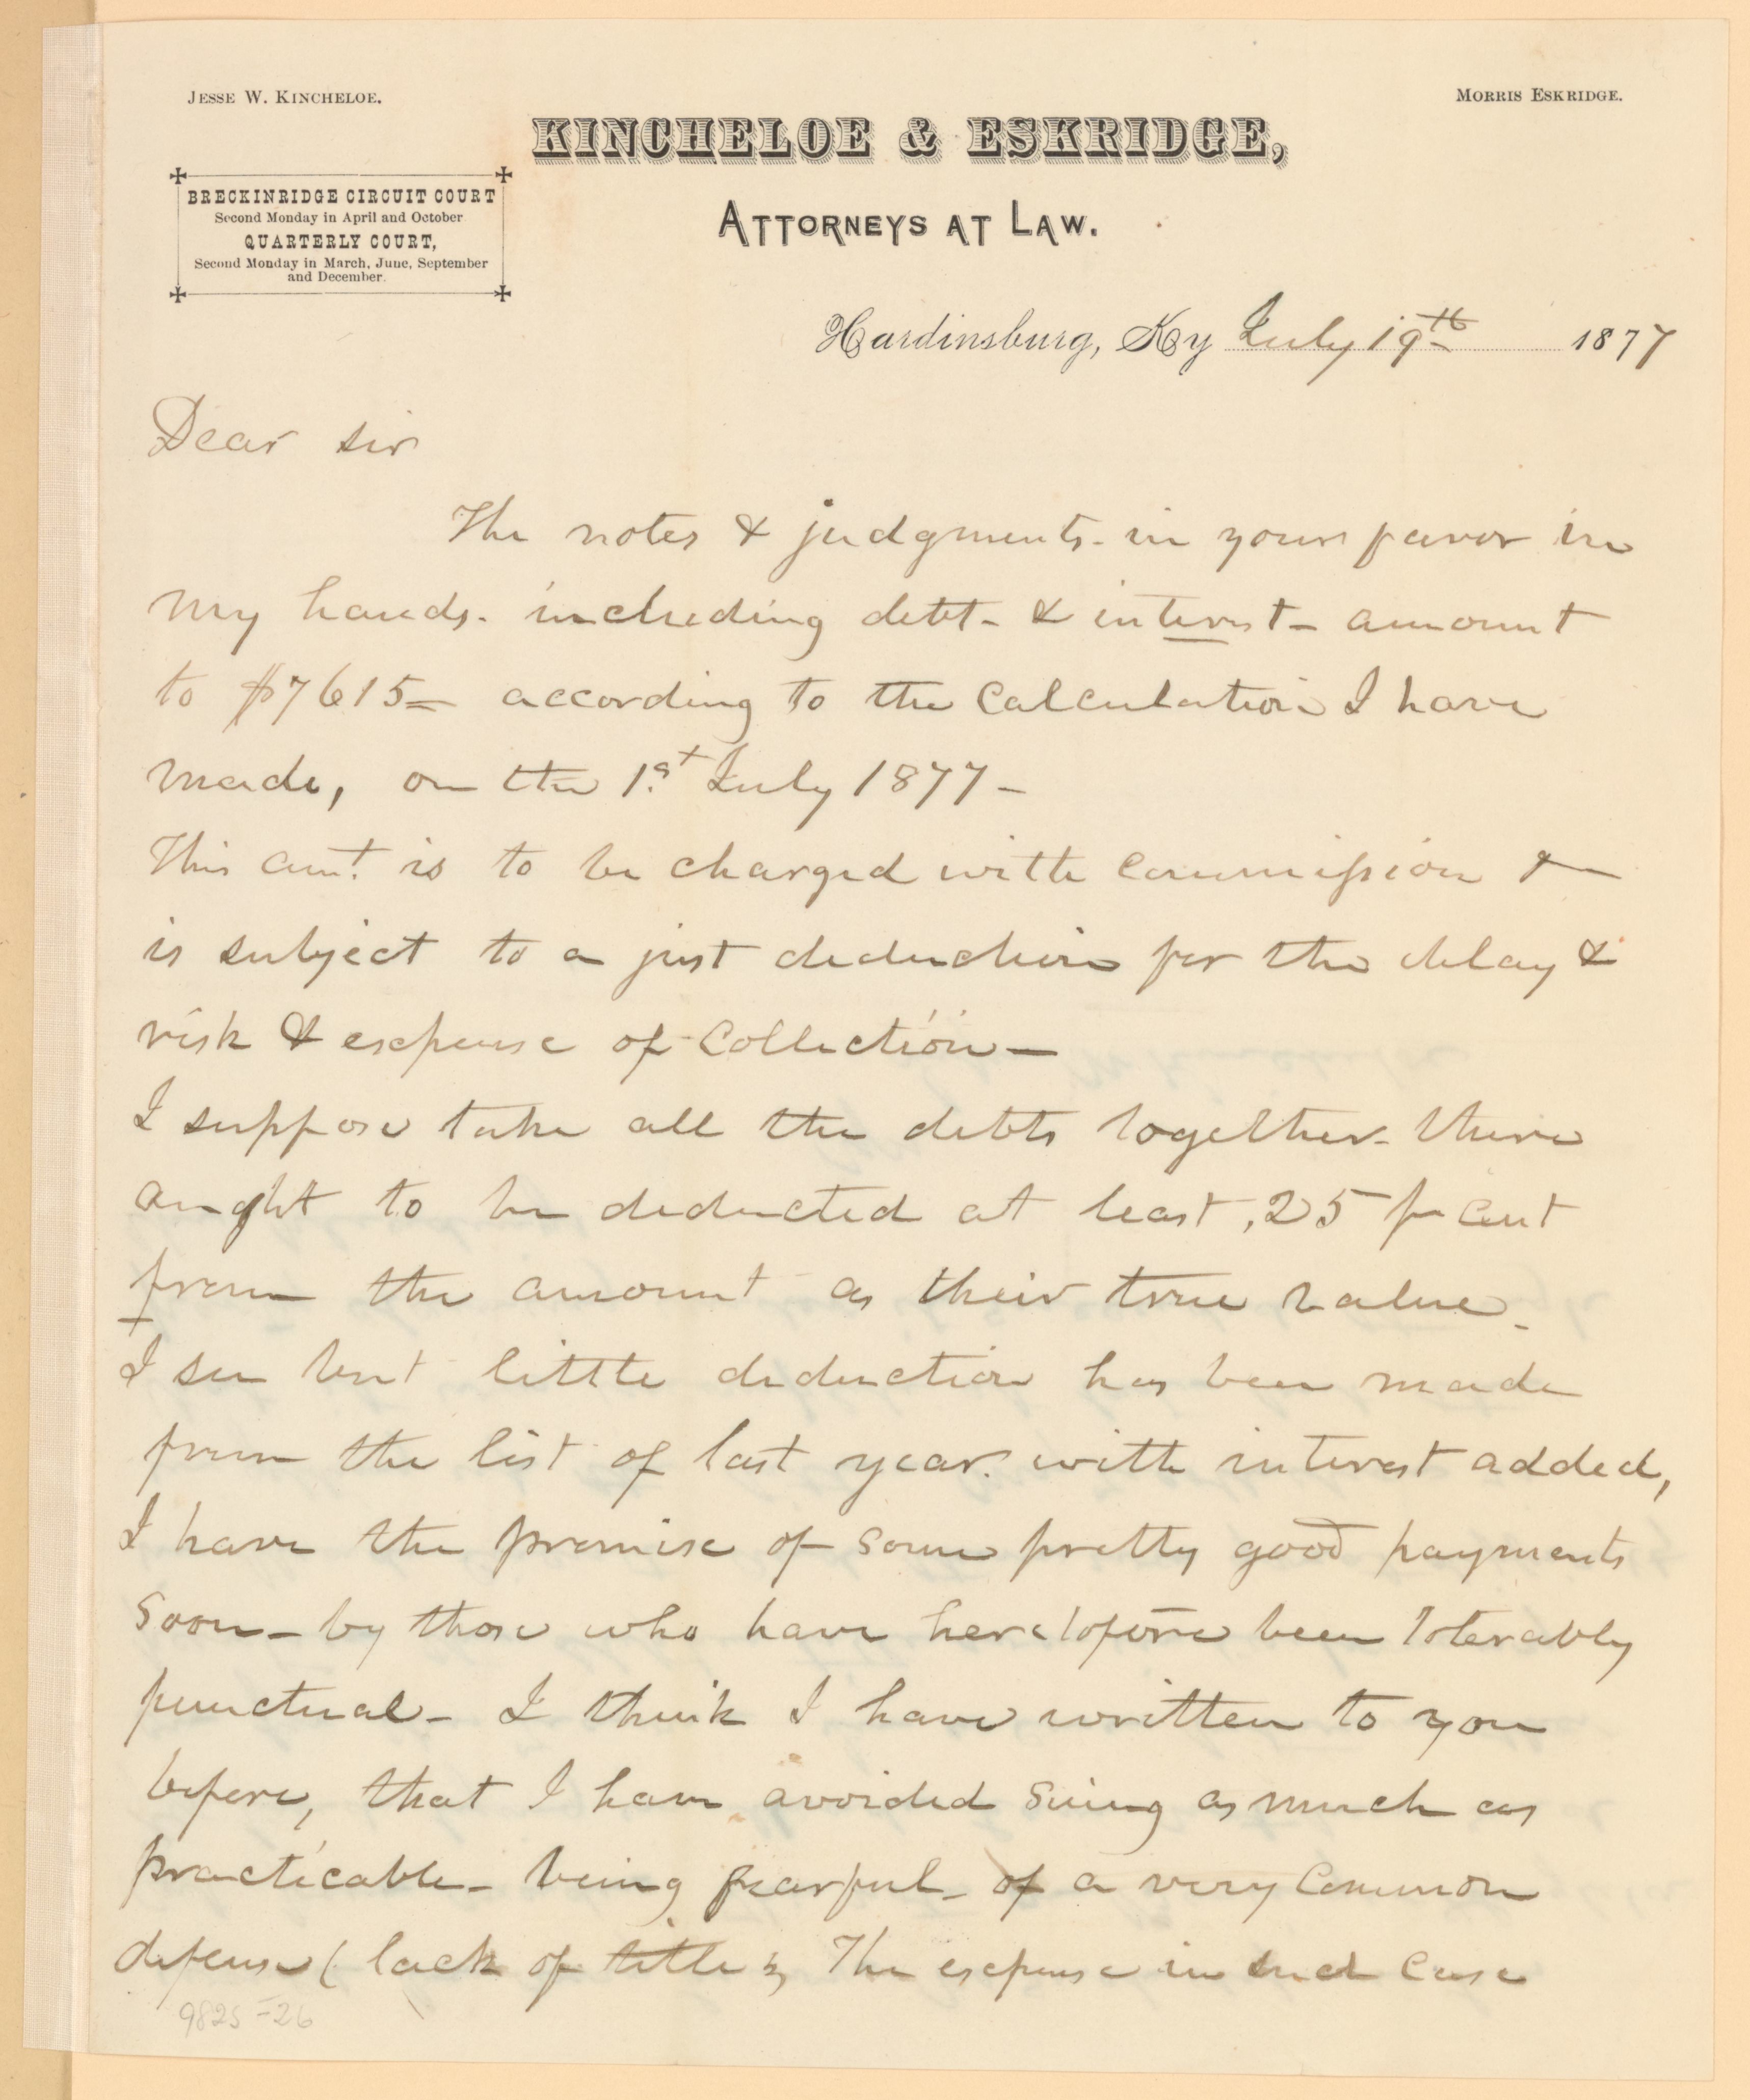 JESSE W. KINCHELOE.
MORRIS ESKRIDGE.
KINCHELOE & ESKRIDGE,
ATTORNEYS AT LAW.
BRECKINRIDGE CIRCUIT COURT
Second Monday in April and October
QUARTERLY COURT,
Second Monday in March, June, September
and December.
Hardinsburg, Ky July 19th 1877
Dear sir
The notes & judgments- in your favor in
my hands. including debt- & interest- amount
to $7615= according to the calculation I have
made, on the 1st July 1877-
This amt. is to be charged with commission &
is subject to a just deduction for the delay &
risk & expense of collection-
I suppose take all the debts together- there
aught to be deducted at least, 25 pr cent
from the amount as their true value-
I see but little deduction has been made
from the list of last year. with interest added,
I have the promise of some pretty good payments
soon- by those who have heretofore been tolerably
punctual- I think I have written to you
before, that I have avoided suing as much as
practicable- being fearful- of a very common
defense ( lack of title ), The expense in such case
9825-26